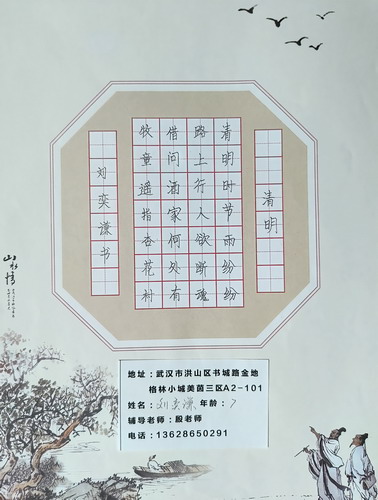 清明
清明时节雨纷纷
路上行人欲断魂
借问酒家何处有
牧童遥指杏花村
刘奕谦书
山水情
地址：武汉市洪山区书城路金地
格林小城美茵三区A2-101
姓名：刘奕谦 年龄：7
辅导老师：殷老师
电话：13628650291